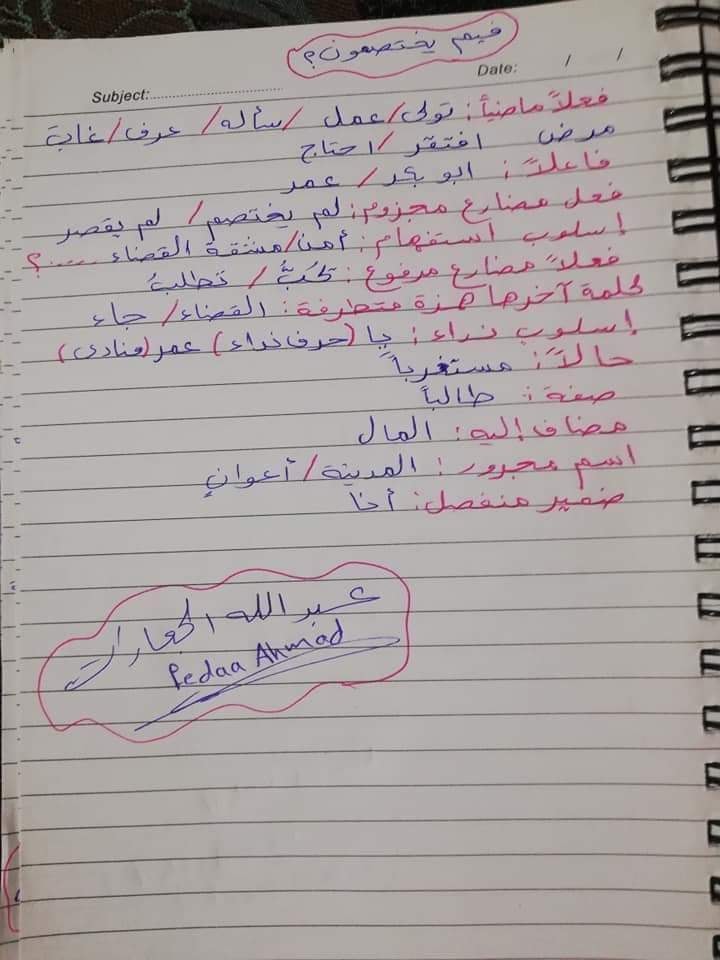 فيم يختصمون؟
Subject:
Date: / /
فعلاً ماضياً: تولى/ عمل /سأله/ عرف/ غاب
مرض افتقر /احتاج
فاعلاً: ابو بكر/ عمر
فعل مضارع مجزوم: لم يختصم/ لم يقصر
إسلوب استفهام: أمن/مشقة القضاء .....؟
فعلاً مضارع مرفوع: تحبُّ/ تطلبُ
كلمة آخرها همزة متطرفة: القضاء/ جاء
إسلوب نداء: يا (حرف نداء) عمر (منادى)
حالاً: مستغرباً
صفة: طالباً
مضاف إليه: المال
اسم مجرور: المدينة/ أعوانٍ
ضمير منفصل: أنا
عبد الله الجعارات
Pedaa Ahmad